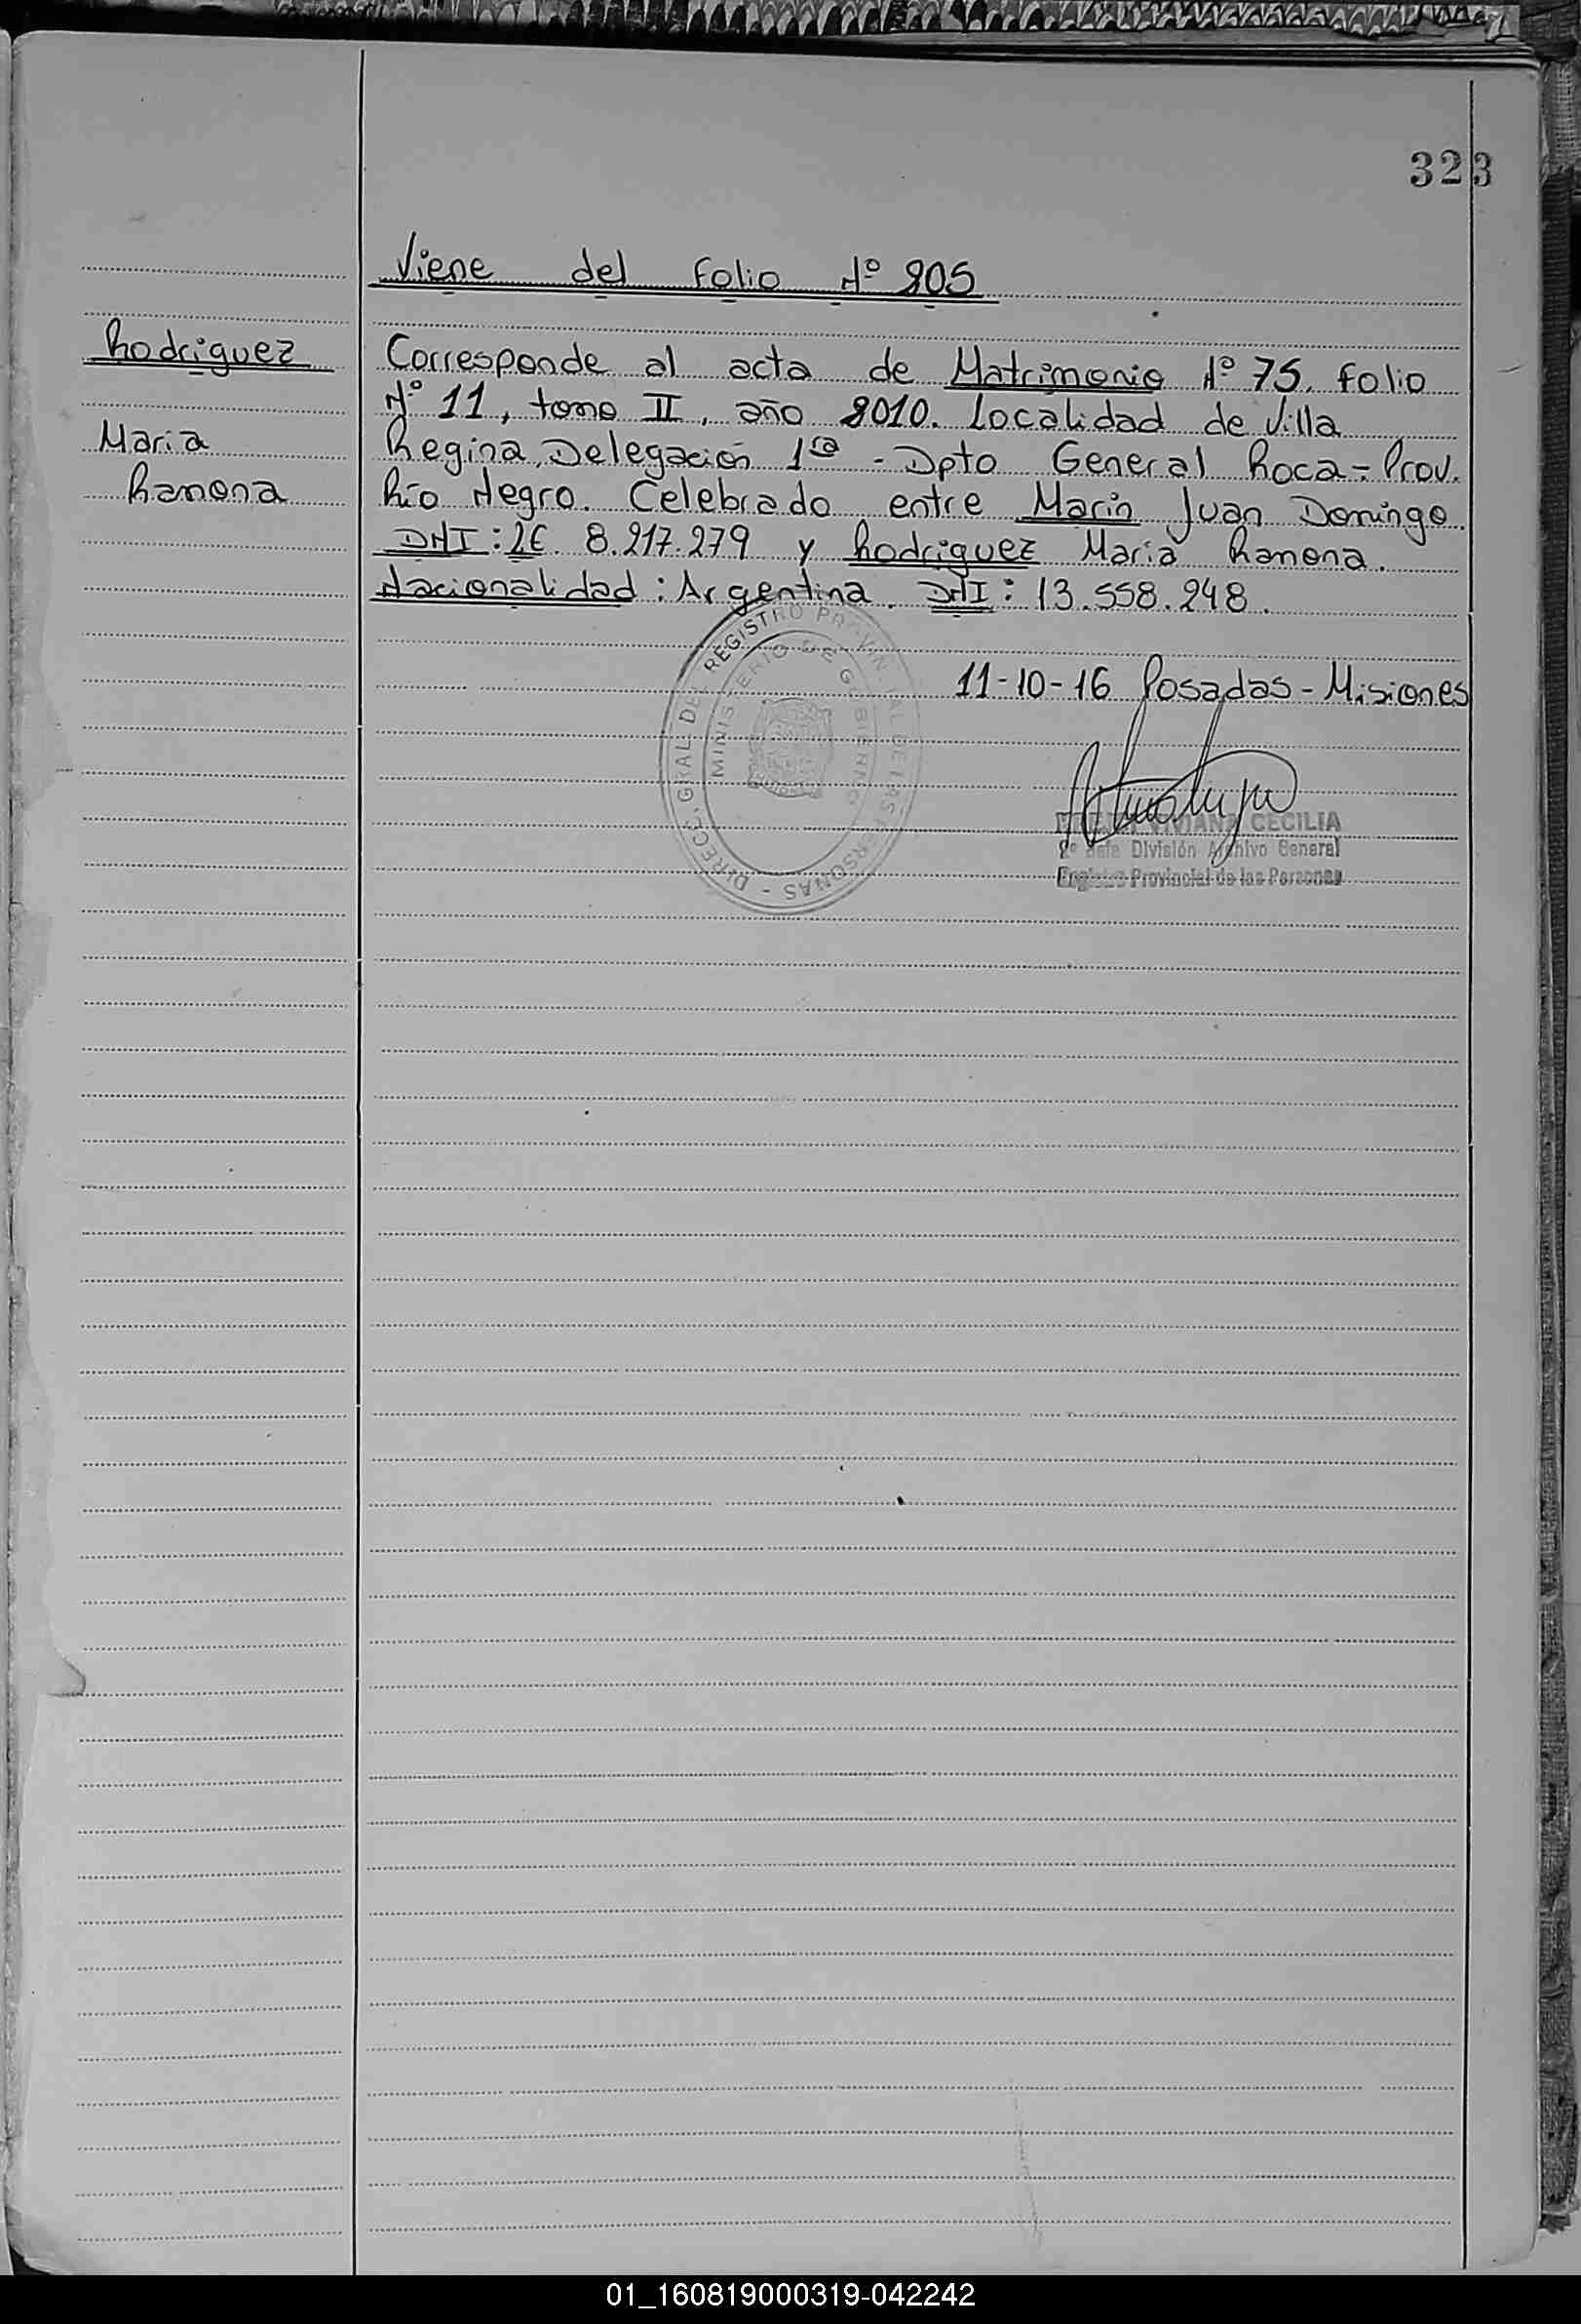 323
Viene del folio Nº 205
Rodriguez
Maria
Ramona
Corresponde al acta de Matrimonio Nº 75, folio
Nº 11, tomo II, año 2010. Localidad de Villa
Regina, Delegación 1ra - Dpto General Roca - Prov.
Río Negro. Celebrado entre Marin Juan Domingo
DNI: LE. 8.217.279 y Rodriguez Maria Ramona.
Nacionalidad: Argentina. DNI: 13.558.248.
11-10-16 Posadas - Misiones
DIRECC. GRAL. DEL REGISTRO PROVINCIAL DE LAS PERSONAS -
MINISTERIO DE GOBIERNO
VIVIANA CECILIA
2º Jefe División Archivo General
Registro Provincial de las Personas
01_160819000319-042242